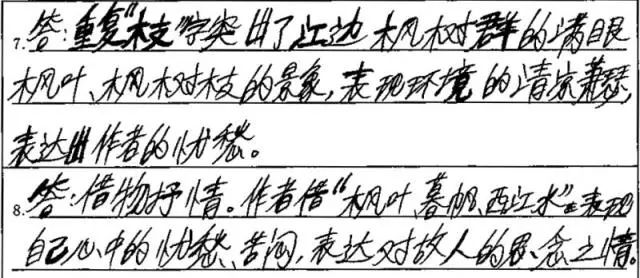 7. 答:重复"枝"字突出了江边枫树群的满眼
枫叶、枫树枝的景象,表现环境的清寂萧瑟,
表达出作者的忧愁。
8. 答:借物抒情。作者借"枫叶、暮帆、西江水"表现
自己心中的忧愁、苦闷,表达对故人的思念之情。